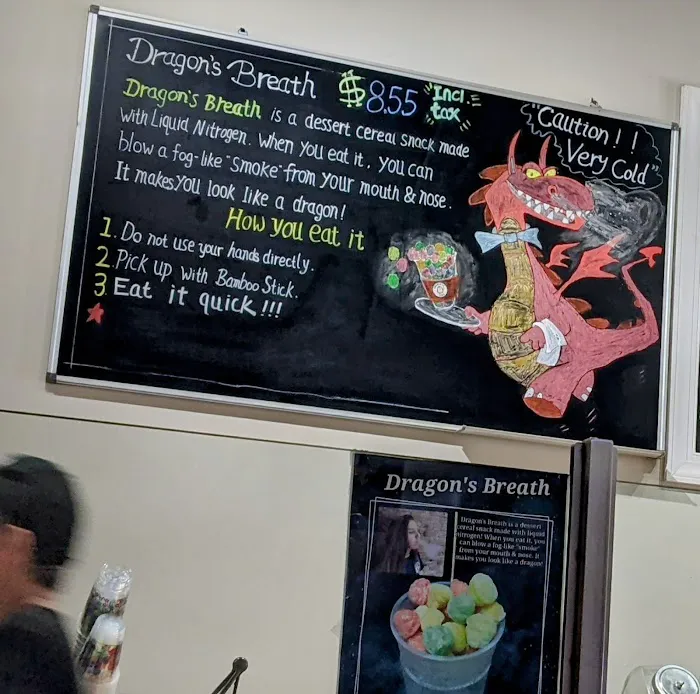 Dragon's Breath $8.55 "Incl tax"
Dragon's Breath is a dessert cereal snack made
with Liquid Nitrogen. When you eat it, you can
blow a fog-like "smoke" from your mouth & nose.
It makes you look like a dragon!
How you eat it
1. Do not use your hands directly.
2. Pick up with Bamboo Stick.
3 Eat it quick!!!
"Caution!!
Very Cold"
Dragon's Breath
Dragon's Breath is a dessert
cereal snack made with liquid
nitrogen! When you eat it, you
can blow a fog-like "smoke"
from your mouth & nose. It
makes you look like a dragon!